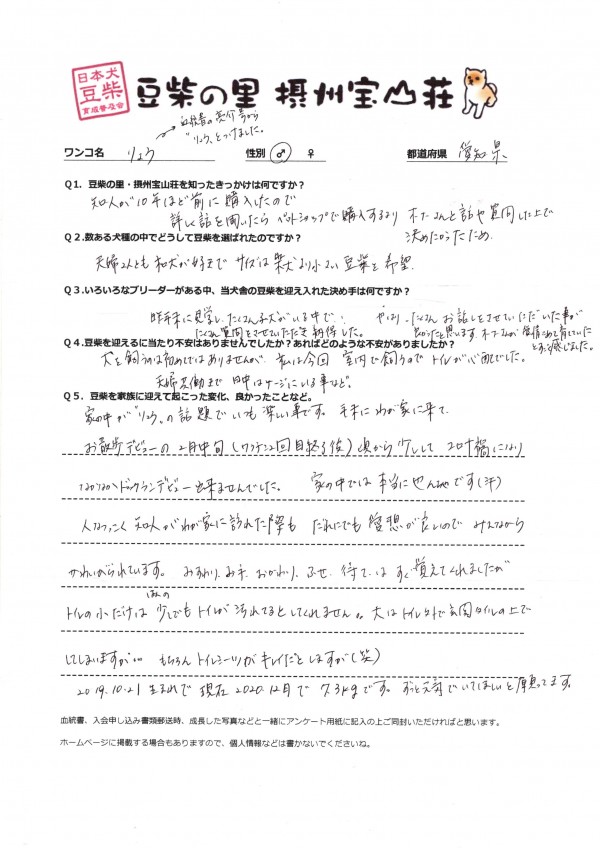 日本犬
豆柴
育成普及会
豆柴の里 摂州宝山荘
血統書の
"りょう"とつけました。
ワンコ名 りょう 性別 ♂ ♀ 都道府県 愛知県
Q1. 豆柴の里・摂州宝山荘を知ったきっかけは何ですか？
知人が10年ほど前に購入したので
詳しく話を聞いたら ペットショップで購入するより オーナーさんと話や質問した上で
決めたかったため
Q2.数ある犬種の中でどうして豆柴を選ばれたのですか？
夫婦2人とも和犬が好きで サイズは柴犬より小さい豆柴を希望
Q3.いろいろなブリーダーがある中、当犬舎の豆柴を迎え入れた決め手は何ですか？
昨年末に見学し、たくさん子犬がいる中で！ やはり、たくさんお話しをさせていただいた事が
たくさん質問をさせていただき納得した。 良かったと思います。オーナーさんが 愛情こめて育てていた
とお感じました。
Q4.豆柴を迎えるに当たり不安はありませんでしたか？あればどのような不安がありましたか？
犬を飼うのは初めてではありませんが、私は今回 室内で飼うので トイレが心配でした。
夫婦共働きで 日中はケージにいる事など。
Q5. 豆柴を家族に迎えて起こった変化、良かったことなど。
家の中が"りょう"の話題でいつも楽しい事です。年末にわが家に来て、
お散歩デビューの2月中旬(ワクチン2回目終了後)頃から少ししてコロナ禍になり
なかなかドックランデビュー出来ませんでした。 家の中では本当にやんちゃです(汗)
人なつっこく 知人がわが家に訪れた際も だれにでも愛想が良いので みんなから
かわいがられています。 おすわり、お手、おかわり、ふせ、待て、は すぐ覚えてくれましたが
トイレの小だけは ほんの少しでもトイレが汚れてるとしてくれません。大はトイレ外で玄関タイルの上で
してしまいますが… もちろんトイレシーツが キレイだとしますが(笑)
2019.10.21 生まれで 現在 2020.12月で 7.3kgです。ずっと元気でいてほしいと願ってます。
血統書、入会申し込み書類郵送時、成長した写真などと一緒にアンケート用紙に記入の上ご同封いただければと思います。
ホームページに掲載する場合もありますので、個人情報などは書かないでくださいね。